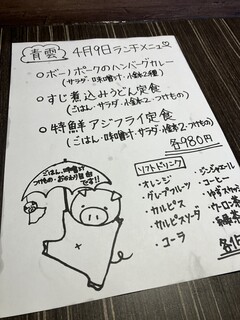 青雲 4月9日ランチメニュー
○ボーノポークのハンバーグカレー
(サラダ・味噌汁・小鉢2種)
○すじ煮込みうどん定食
(ごはん・サラダ・小鉢2・つけもの)
○特鮮アジフライ定食
(ごはん・味噌汁・サラダ・小鉢2・つけもの)
各980円
ごはん・味噌汁
つけもの・おかわり自由
です!!
ソフトドリンク
・オレンジ
・グレープフルーツ
・カルピス
・カルピスソーダ
・コーラ
・ジンジャエール
・コーヒー
・ウーロン茶